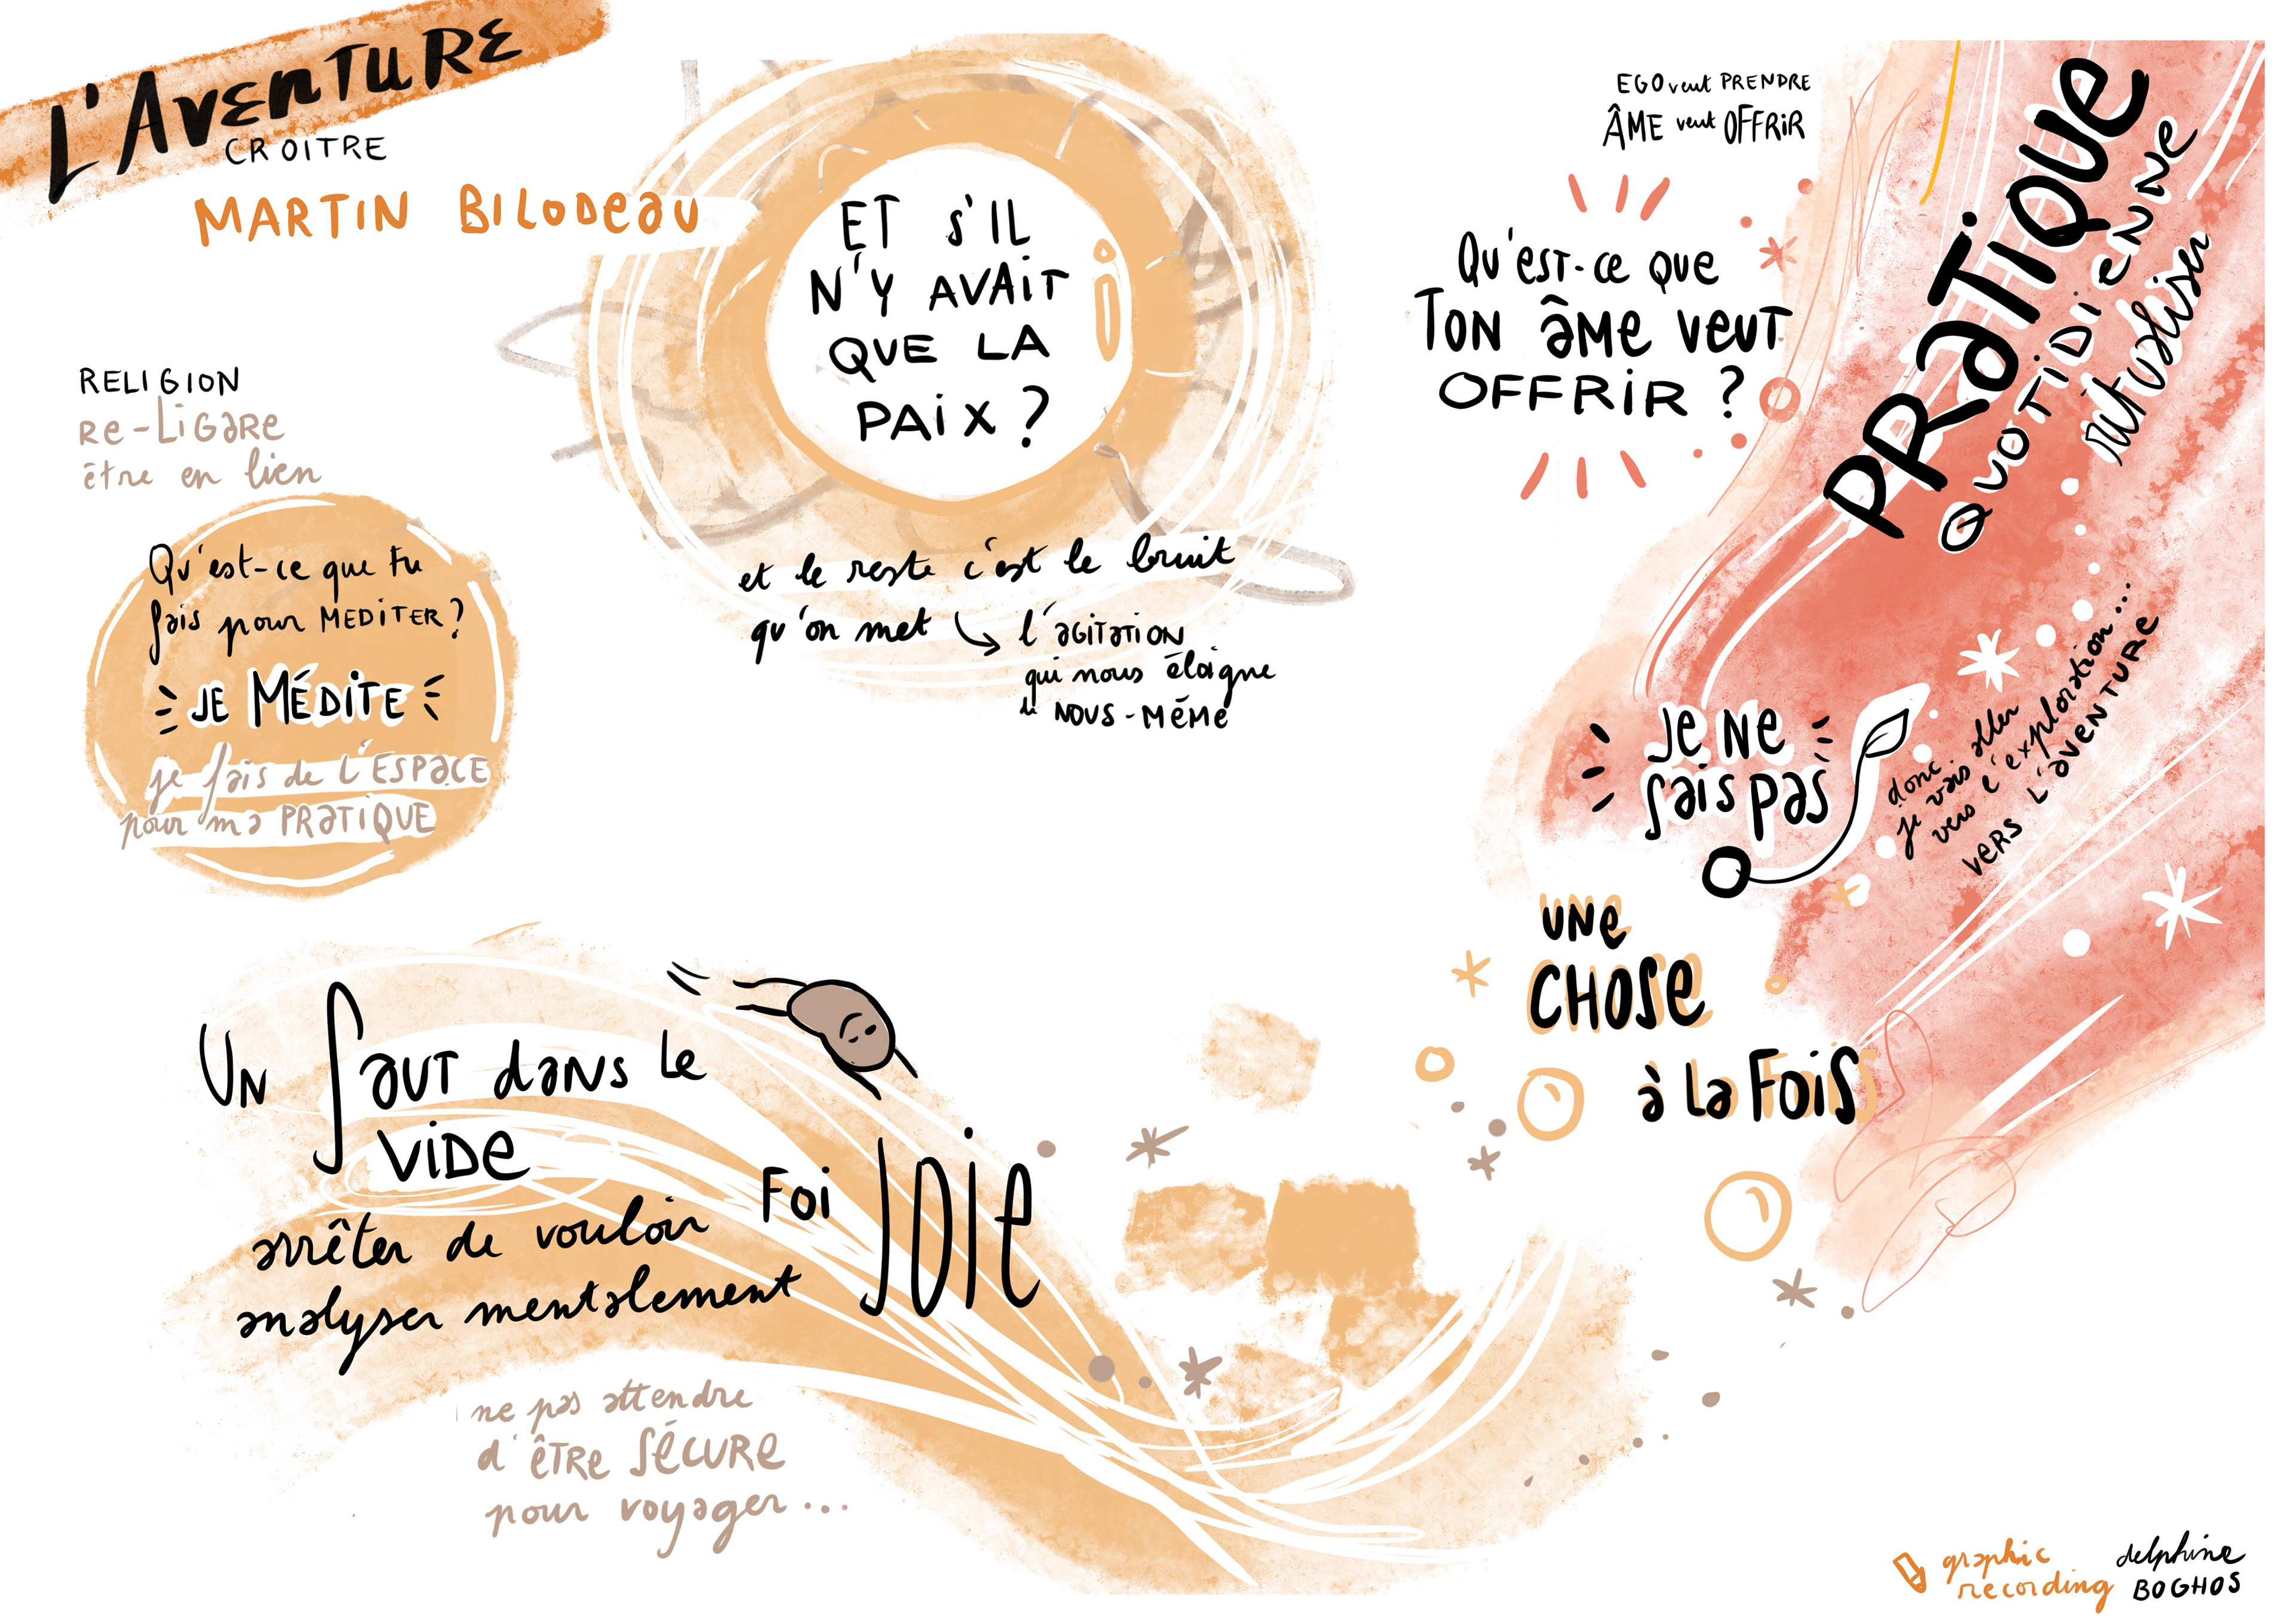 L'AVENTURE
CROITRE
MARTIN BILODEAU
RELIGION
RE-LIGARE
être en lien
Qu'est-ce que tu
fais pour MEDITER?
JE MÉDITE
je fais de L'ESPACE
pour ma PRATIQUE
ET S'IL
N'Y AVAIT
QUE LA
PAIX ?
et le reste c'est le bruit
qu'on met
l'AGITATION
qui nous éloigne
de NOUS-MÊME
EGO veut PRENDRE
ÂME veut OFFRIR
Qu'EST-ce QUE
TON ÂME VEUT
OFFRIR ?
PRATIQUE
QUOTIDIENNE
ritualiser
JE NE
SAIS PAS
donc
je vais aller
vers l'exploration...
VERS L'AVENTURE
UNE
CHOSE
à la FOIS
UN SAUT dANS LE
VIDE
arrêter de vouloir
analyser mentalement
FOI
JOIE
ne pas attendre
d'ÊTRE SÉCURE
pour voyager...
graphic
recording
delphine
BOGHOS